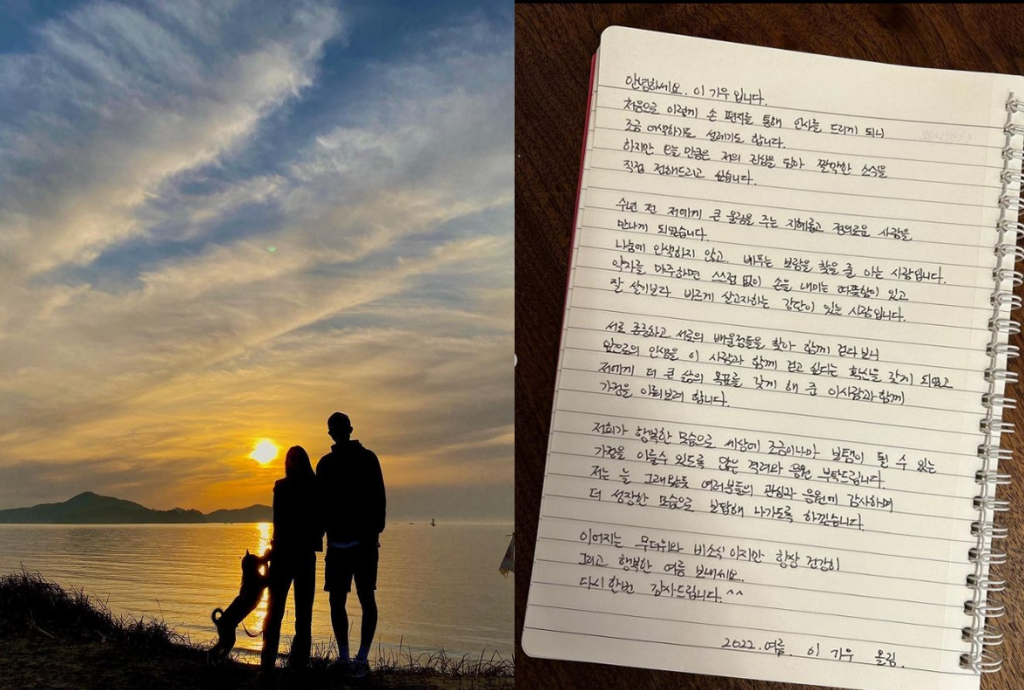 안녕하세요. 이 가우 입니다.
처음으로 이렇게 손 편지를 통해 인사를 드리게 되니
조금 어색하기도 설레기도 합니다.
하지만 오늘 만큼은 저의 진심을 담아 짤막한 소식을
직접 전해드리고 싶습니다.
수년 전 저에게 큰 울림을 주는 지혜롭고 정의로운 사람을
만나게 되었습니다.
나눔에 인색하지 않고, 베푸는 보람을 찾을 줄 아는 사람입니다.
약자를 마주하면 스스럼 없이 손을 내미는 따뜻함이 있고
잘 살기보다 바르게 살고자하는 강단이 있는 사람입니다.
서로 존중하고 서로의 배울점들을 찾아 함께 걷다보니
앞으로의 인생을 이 사람과 함께 걷고 싶다는 확신을 갖게 되었고
저에게 더 큰 삶의 목표를 갖게 해 준 이사람과 함께
가정을 이뤄보려 합니다.
저희가 행복한 모습으로 세상에 조금이나마 보탬이 될 수 있는
가정을 이룰수 있도록 많은 격려와 응원 부탁드립니다.
저는 늘 그래왔듯 여러분들의 관심과 응원에 감사하며
더 성장한 모습으로 보답해 나가도록 하겠습니다.
이어지는 무더위와 비소식 이지만 항상 건강히
그리고 행복한 여름 보내세요.
다시한번 감사드립니다.^^
2022.여름. 이 가우 올림.